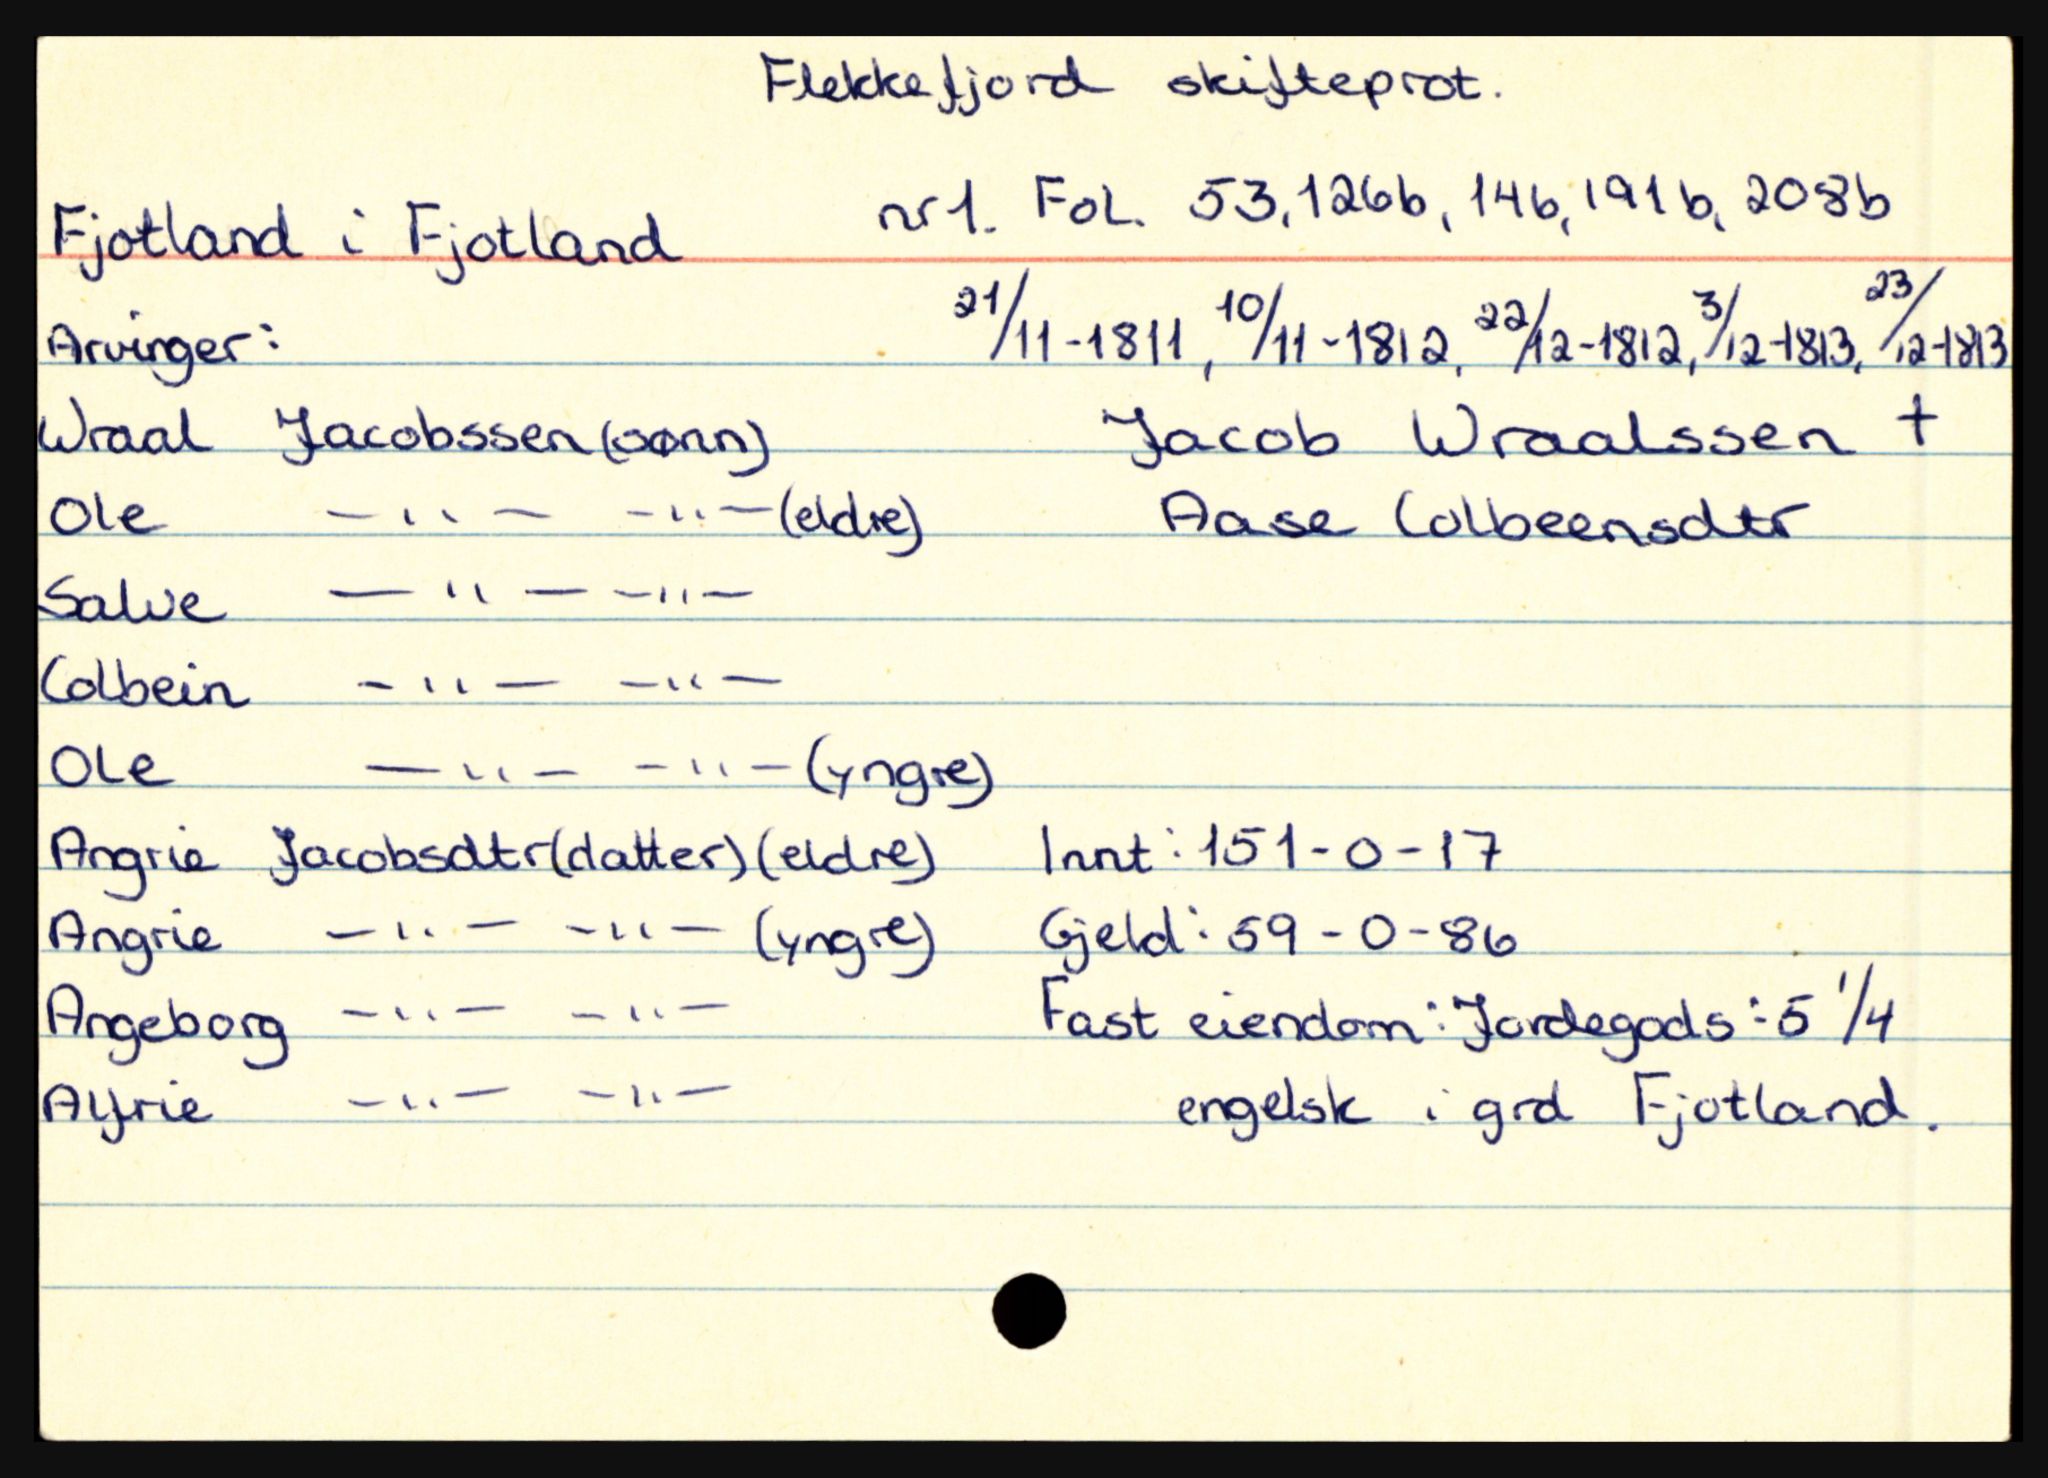 Flekkefjord skifteprot.
Fjotland i Fjotland nr 1. Fol. 53, 126b, 14b, 191b, 208b
Arvinger: 21/11-1811, 10/11-1812, 22/12-1812, 3/12-1813, 23/12-1813
Wraal Jacobssen (sønn) Jacob Wraalssen †
Ole —"— —"— (eldre) Aase Colbeensdtr
Salve —"— —"—
Colbein —"— —"—
Ole —"— —"— (yngre)
Angrie Jacobsdtr (datter) (eldre) Innt: 151-0-17
Angrie —"— —"— (yngre) Gjeld: 59-0-86
Angeborg —"— —"— Fast eiendom: Jordegods: 5 1/4
Alfrie —"— —"— engelsk i grd Fjotland.